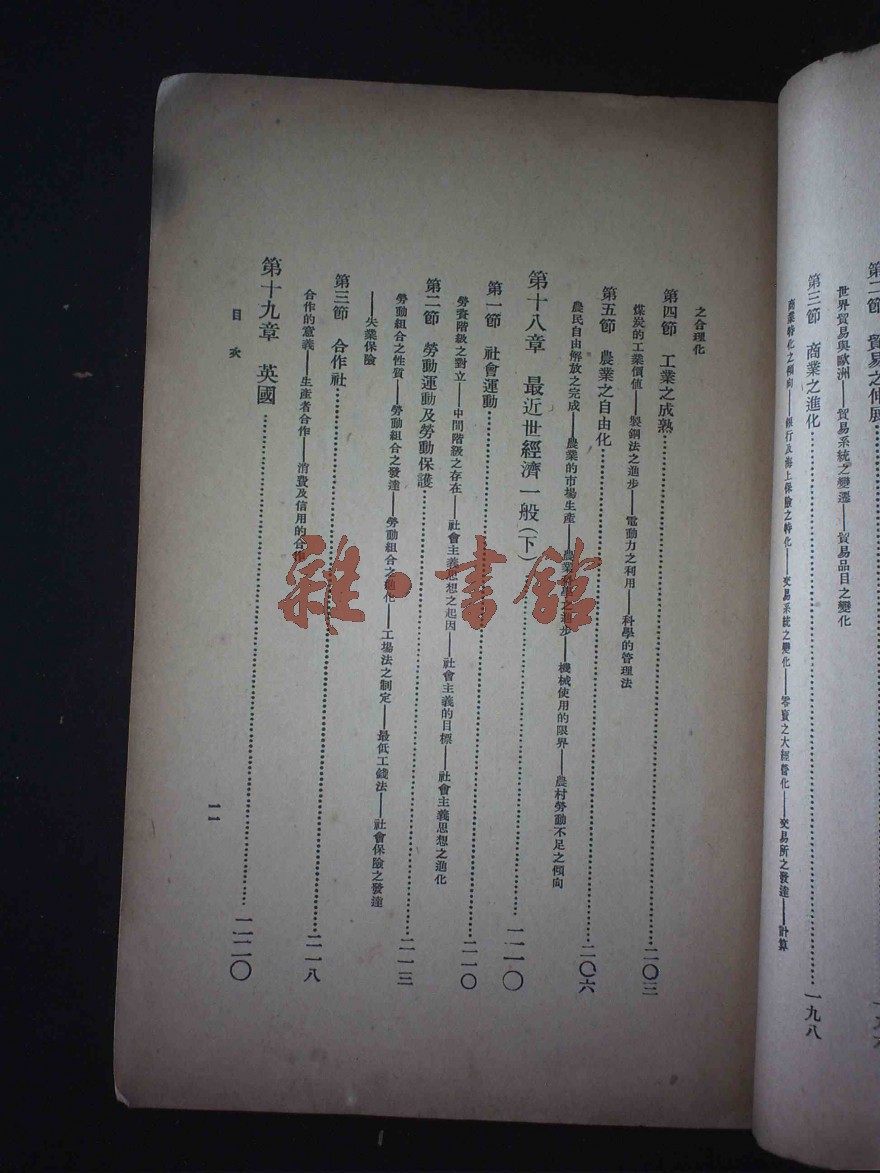 第二節　貿易之伸展
世界貿易與歐洲——貿易系統之變遷——貿易品目之變化
第三節　商業之進化……一九八
商業特化之傾向——銀行及海上保險之特化——交易系統之變化——零賣之大經營化——交易所之發達——計算
之合理化
第四節　工業之成熟……二〇三
煤炭的工業價値——製鋼法之進步——電動力之利用——科學的管理法
第五節　農業之自由化……二〇六
農民自由解放之完成——農業的市場生產——農業科學之進步——機械使用的限界——農村勞動不足之傾向
第十八章　最近世經濟一般（下）……二一〇
第一節　社會運動……二一〇
勞資階級之對立——中間階級之存在——社會主義思想之起因——社會主義的目標——社會主義思想之進化
第二節　勞動運動及勞動保護……二一三
勞動組合之性質——勞動組合之發達——勞動組合之進化——工場法之制定——最低工錢法——社會保險之發達
——失業保險
第三節　合作社……二一八
合作的意義——生產者合作——消費及信用的合作
第十九章　英國……二二〇
目次
一一
雜·書館